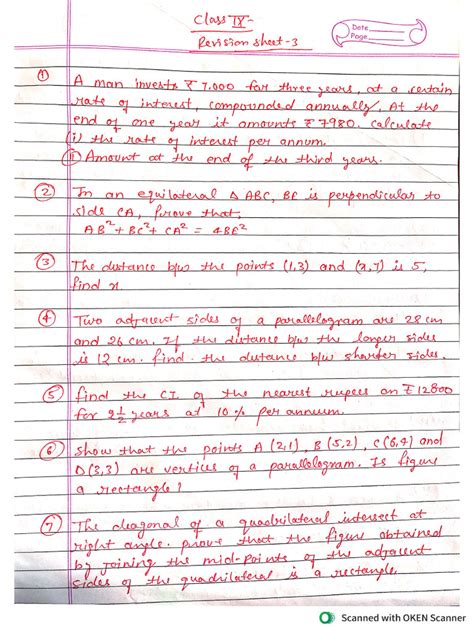 Class IX-
Revision sheet-3
Date
Page
① A man invests ₹ 7,000 for three years, at a certain
rate of interest, compounded annually. At the
end of one year it amounts ₹ 7980. Calculate
(i) the rate of interest per annum.
(ii) Amount at the end of the third years.
② In an equilateral Δ ABC, BE is perpendicular to
side CA, prove that,
AB² + BC² + CA² = 4BE²
③ The distance b/w the points (1,3) and (x,7) is 5,
find x.
④ Two adjacent sides of a parallelogram are 28 cm
and 26 cm. If the distance b/w the longer sides
is 12 cm. find the distance b/w shorter sides.
⑤ find the CI. of the nearest rupees on ₹ 12800
for 2½ years at 10 % per annum.
⑥ Show that the points A (2,1), B (5,2), C (6,4) and
D (3,3) are vertices of a parallelogram. Is figure
a rectangle?
⑦ The diagonal of a quadrilateral intersect at
right angle. prove that the figure obtained
by joining the mid-points of the adjacent
sides of the quadrilateral is a rectangle.
Scanned with OKEN Scanner